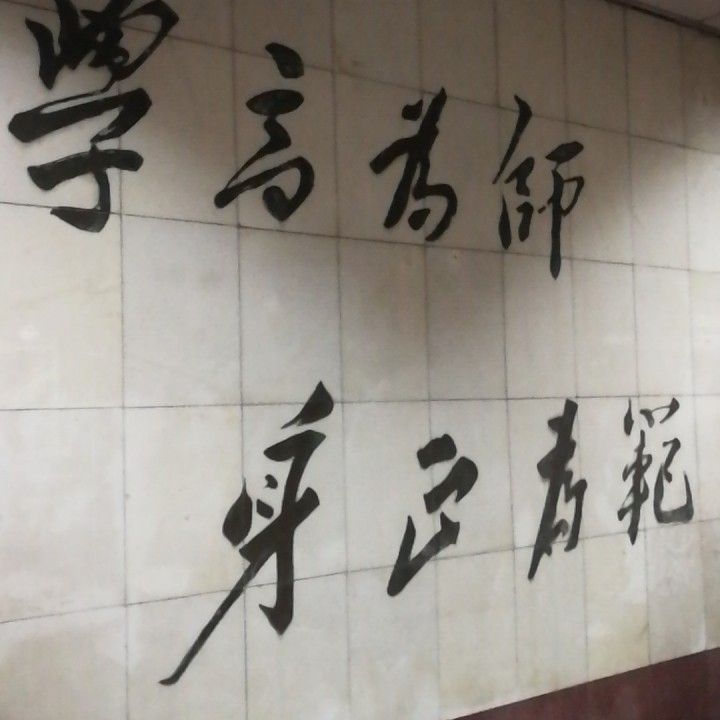 學高為師
身正為範